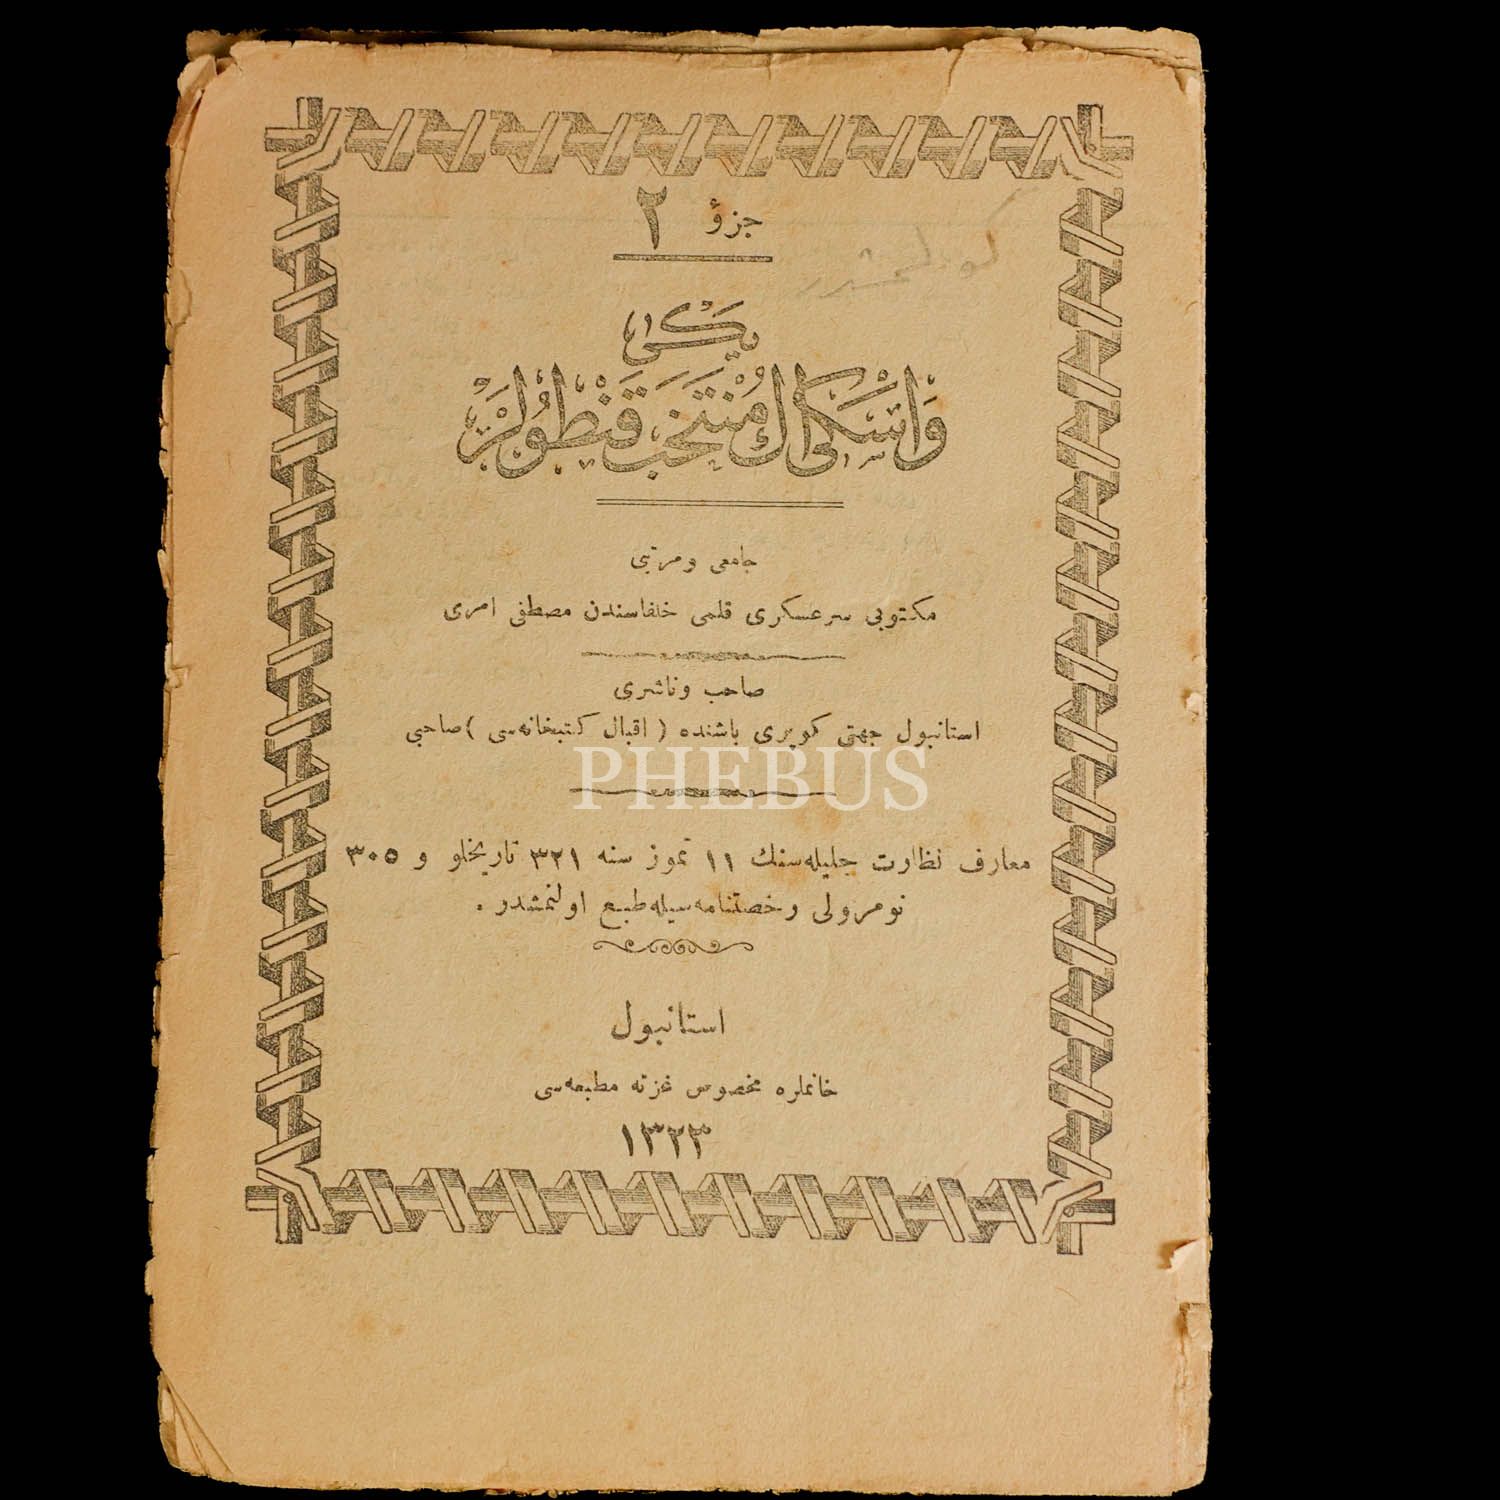 جزؤ ۲
یکی
وَاسکی اك مُنتخَب قَنطولَر
جامعی و مرتبی
مکتوبی سرعسکری قلمی خلفاسندن مصطفی امری
صاحب و ناشری
استانبول جهتی کوپری باشنده ( اقبال کتبخانه‌سی ) صاحبی
PHEBUS
معارف نظارت جلیله‌سنك ۱۱ تموز سنه ۳۲۱ تاریخلو و ۳۰۵
نومرولی رخصتنامه‌سیله طبع اولنمشدر .
استانبول
خانملره مخصوص غزته مطبعه‌سی
۱۳۲۳